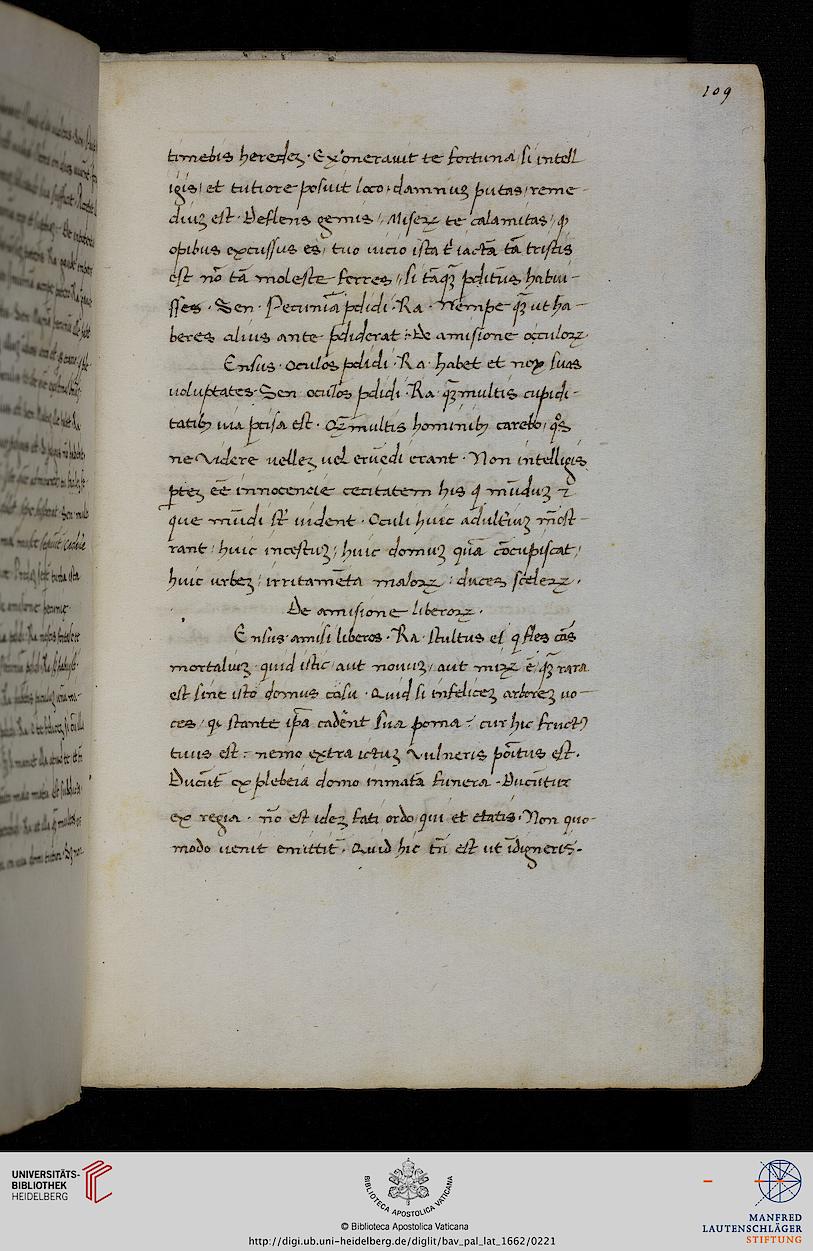 109
timebis heredeʒ · Exonerauit te fortuna / si intell
igis / et tutiore posuit loco / damnuʒ putas / reme-
diuʒ est · Deflens gemis / Miseꝝ te calamitas / ꝙ
opibus excussus es / tuo uicio ista t̄ iactā tā tristis
est nō tā moleste ferres / si tāqꝫ ꝑditus habui-
sses · Sen · Pecuniā ꝑdidi · Ra · Nempe qꝫ ut ha-
beres alius ante ꝑdiderat : De amisione oculoꝝ
Ensus · Oculos ꝑdidi · Ra · habet et nox suas
uoluptates · Sen oculos ꝑdidi · Ra · qꝫ multis cupidi-
tatibꝫ uia p̄cisa est · Qꝫ multis hominibꝫ carebo / qͦs
ne Videre uelleʒ uel eruēdi erant · Non intelligis
ꝑteʒ eē innocencie cecitatem his q̇ mūduʒ
que mūdi st̄ uident · Oculi huic adulteriuʒ mōst-
rant / huic incestuʒ / huic domuʒ quā cōcupiscat /
huic urbeʒ / irritamēta maloꝝ : duces sceleꝝ ·
De amisione liberoꝝ ·
Ensus · amisi liberos · Ra · stultus es q̇ fles cās
mortaliuʒ · quid istic / aut nouuʒ / aut miꝝ ē / qꝫ rara
est sine isto domus casu · Quid si infeliceʒ arboreʒ uo-
ces / qͥ stante ip̄a cadēnt sua poma : cur hic fructꝰ
tuus est : nemo extra ictuʒ Vulneris pōitus est ·
Ducūt ex plebeia domo inmatā funera · Ducūtur
ex regia · nō est ideʒ fati ordo / qui et etatis · Non quo-
modo uenit emittit̄ · Quid hic tn̄ est ut īdigneris ·
UNIVERSITÄTS-
BIBLIOTHEK
HEIDELBERG
BIBLIOTECA APOSTOLICA VATICANA
© Biblioteca Apostolica Vaticana
http://digi.ub.uni-heidelberg.de/diglit/bav_pal_lat_1662/0221
MANFRED
LAUTENSCHLÄGER
STIFTUNG